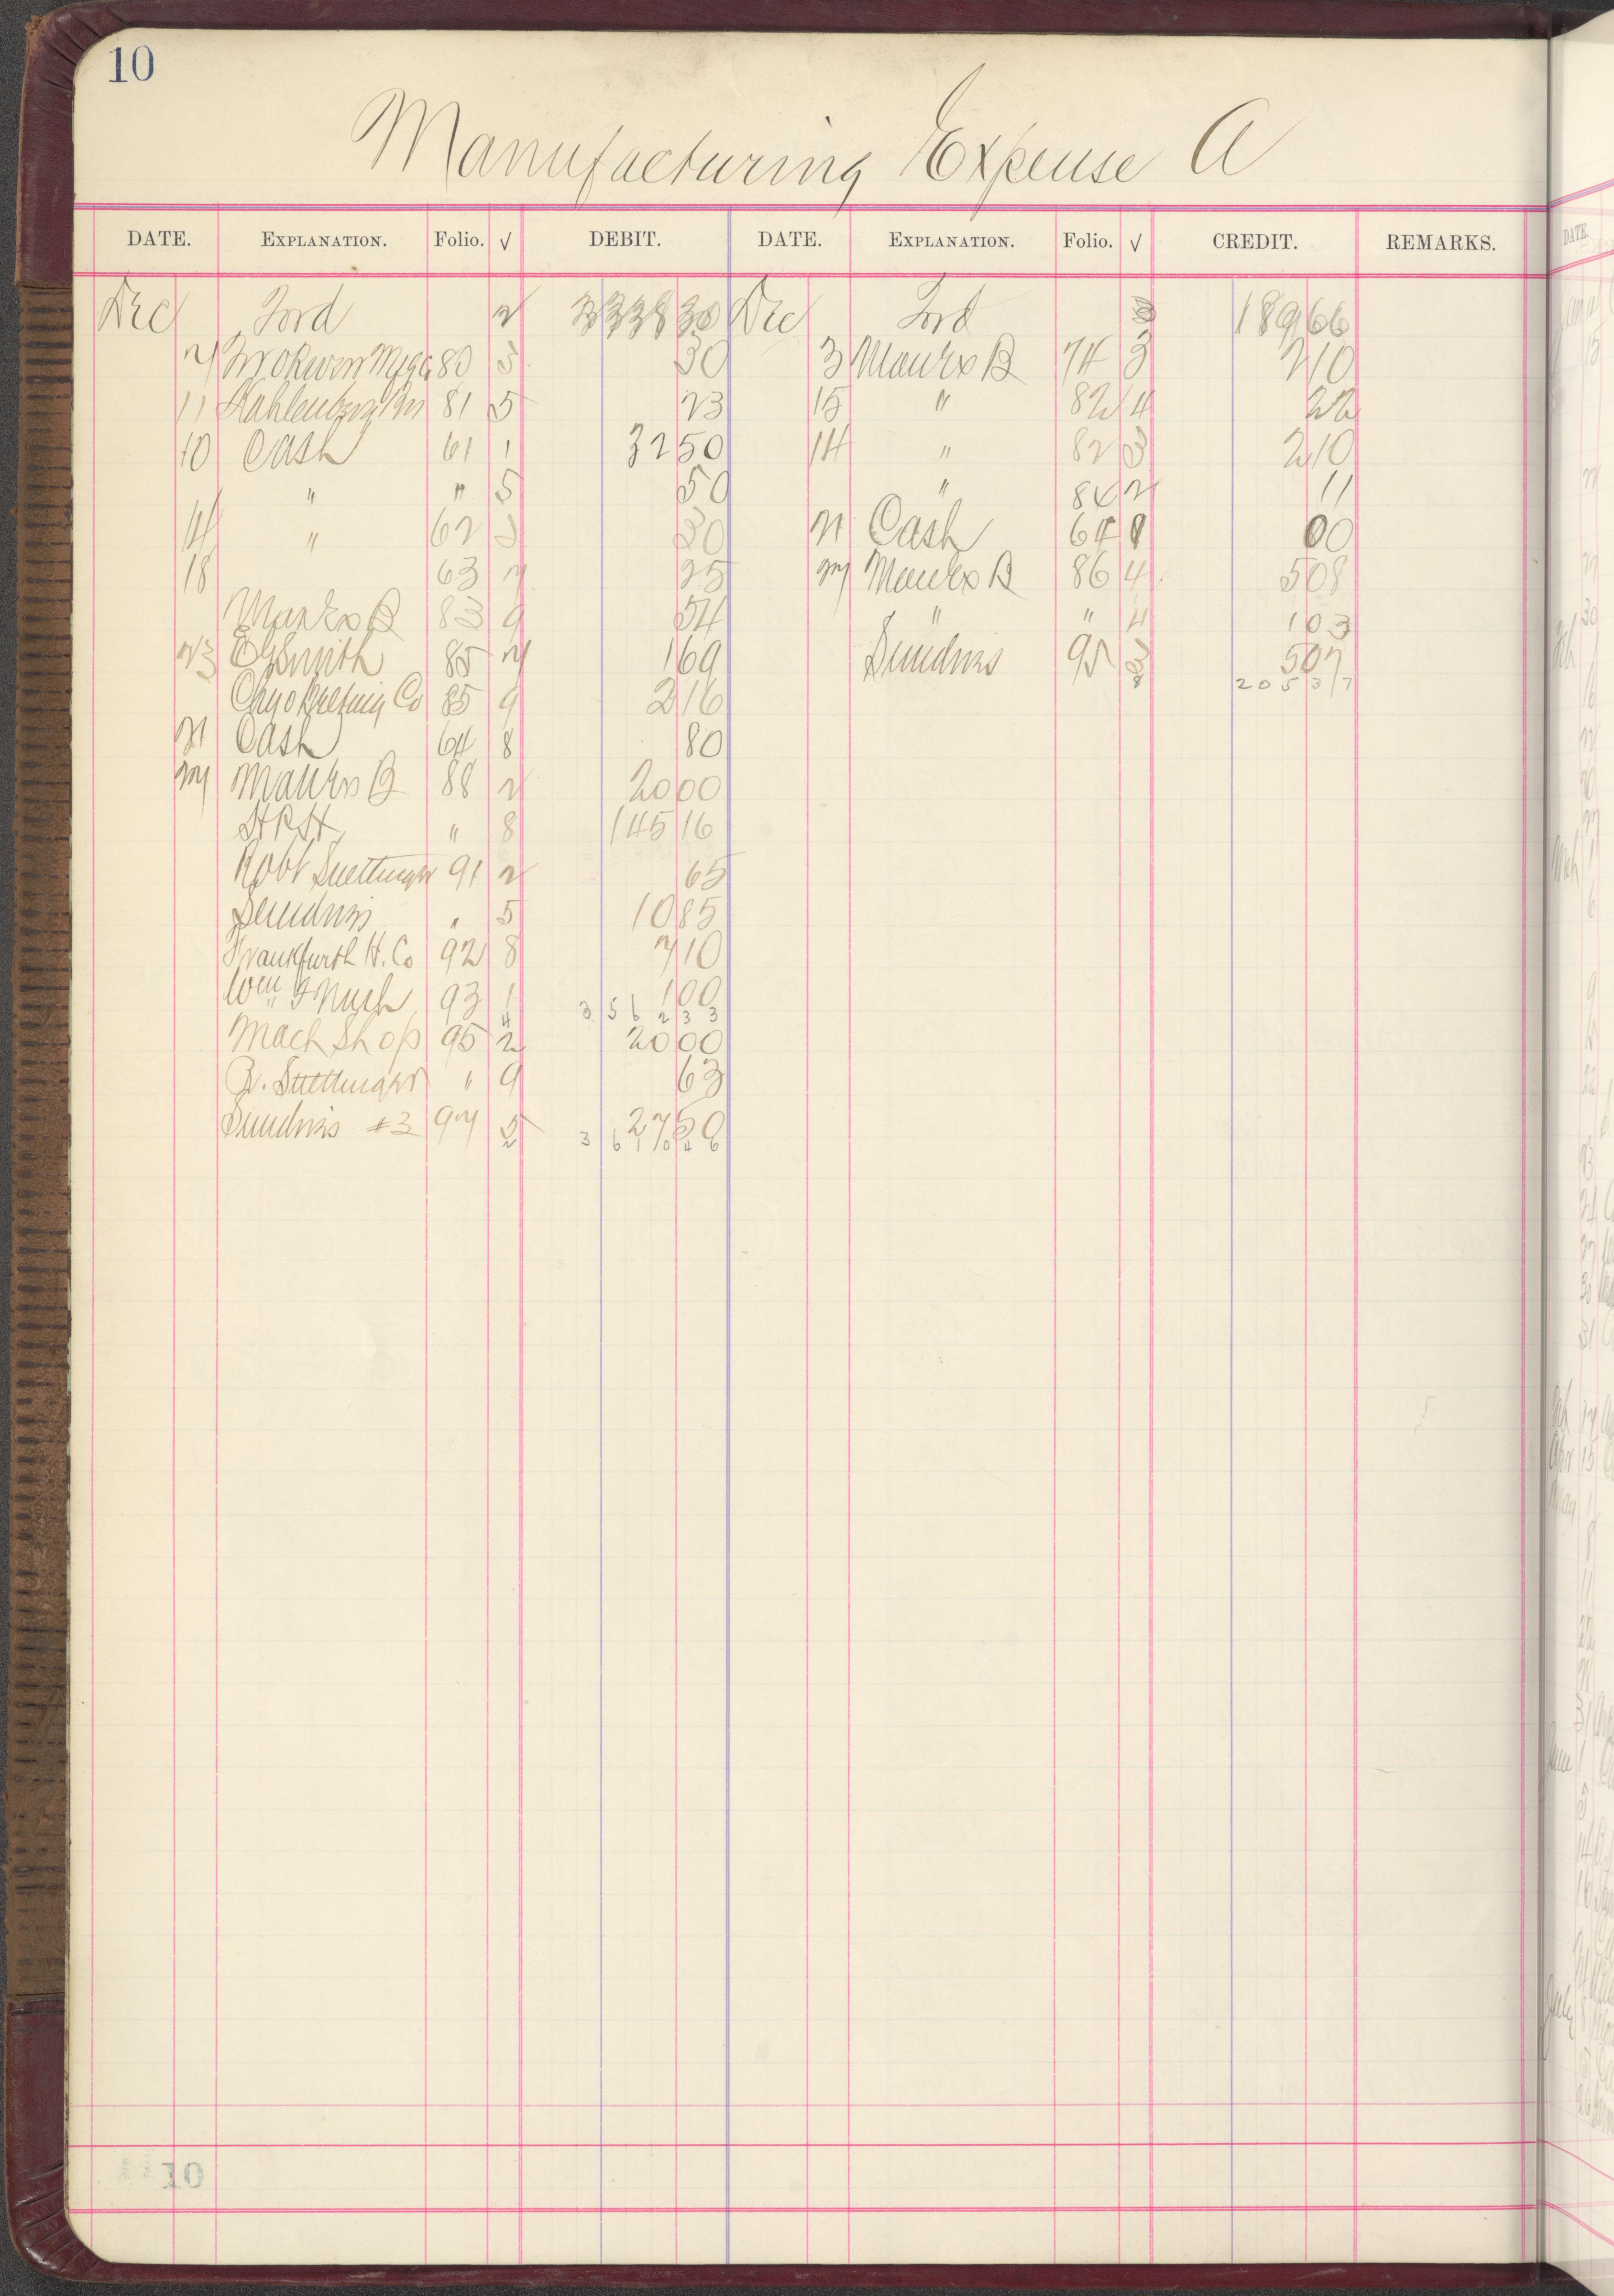 10
Manufacturing Expense A
DATE. EXPLANATION. Folio. √ DEBIT. DATE. EXPLANATION. Folio. √ CREDIT. REMARKS.
Dec Ford 2 3338 30 Dec Ford 3 189 66
7 80 5 30 3 Manfrs B 74 3 2 10
11 Kahlenberg Bros 81 5 23 15 " 82 4 22
10 Cash 61 1 32 50 14 " 82 3 2 10
" " 5 50 " 84 2 11
14 " 62 30 21 Cash 64 1 00
18 63 7 25 27 Manfrs B 86 4 5 08
Manfrs B 83 9 54 " " 4 1 03
23 EG Smith 85 7 1 69 Sundries 95 5 07
Chgo Belting Co 85 9 2 16 205 37
21 Cash 64 8 80
27 Manfrs B 88 2 20 00
HRH " 8 145 16
Robt Suettinger 91 2 65
Sundries " 5 10 85
Frankfurth H. Co 92 8 7 10
Wm F Nush 93 1 1 00
4 3562 33
Mach Shop 95 2 20 00
R. Suettinger " 9 63
Sundries #3 97 5 27 50
2 3610 46
10